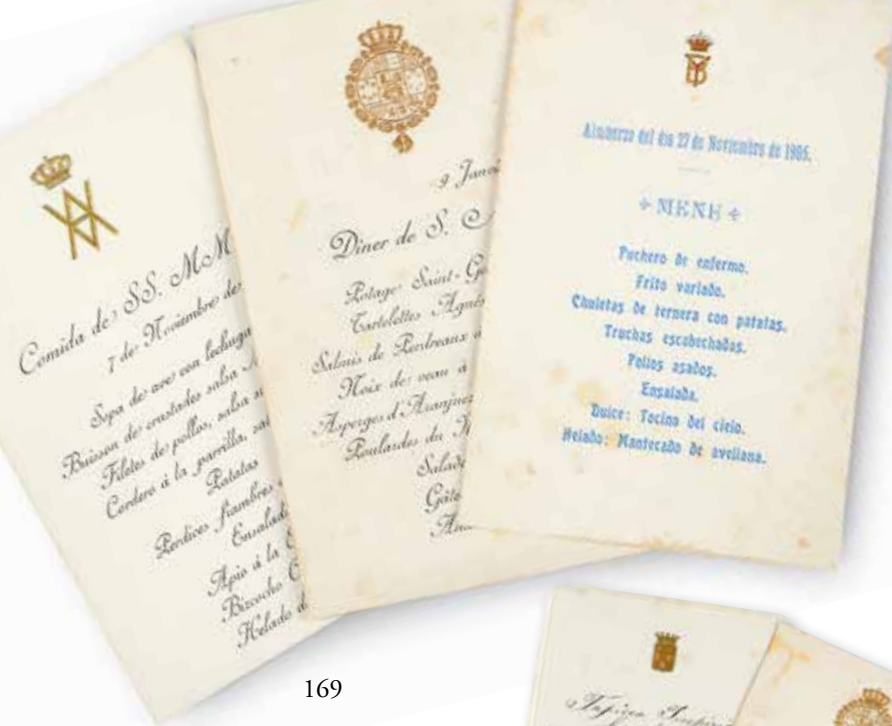 Comida de SS. MM
7 de Noviembre de
Sopa de ave con lechuga
Buisson de crustades salsa
Filetes de pollos, salsa
Cordero á la parrilla,
Patatas
Perdices fiambres
Ensalad
Apio á la
Bizcocho
Helado
9 Janvi
Dîner de S.
Potage Saint-Ge
Tartelettes Agnés
Salmis de Perdreaux
Noix de veau à
Asperges d'Aranjuez
Poulardes du
Salade
Gâte
Almuerzo del dia 27 de Noviembre de 1905.
MENU
Puchero de enfermo.
Frito variado.
Chuletas de ternera con patatas.
Truchas escabechadas.
Pollos asados.
Ensalada.
Dulce: Tocino del cielo.
Helado: Mantecado de avellana.
169